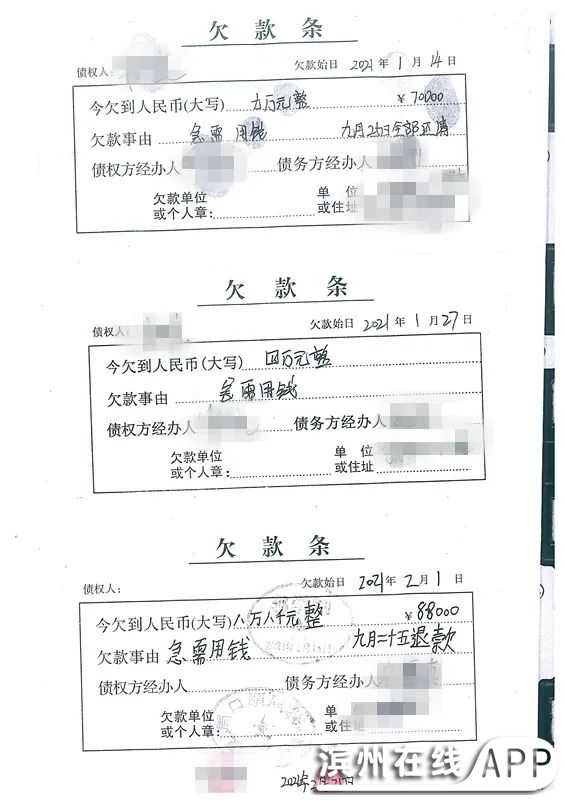 欠款条
债权人： 欠款始日 2021年1月14日
今欠到人民币(大写) 万元整 ¥70000
欠款事由 急需用钱 九月25日全部还清
债权方经办人 债务方经办人
欠款单位 单 位
或个人章： 或住址
欠款条
债权人 欠款始日 2021年1月27日
今欠到人民币(大写) 四万元整
欠款事由 急需用钱
债权方经办人 债务方经办人
欠款单位 单 位
或个人章： 或住址
欠款条
债权人： 欠款始日 2021年2月1日
今欠到人民币(大写) 八万八千元整 ¥88000
欠款事由 急需用钱 九月二十五退款
债权方经办人 债务方经办人
欠款单位 单
或个人章： 或住址
滨州在线APP